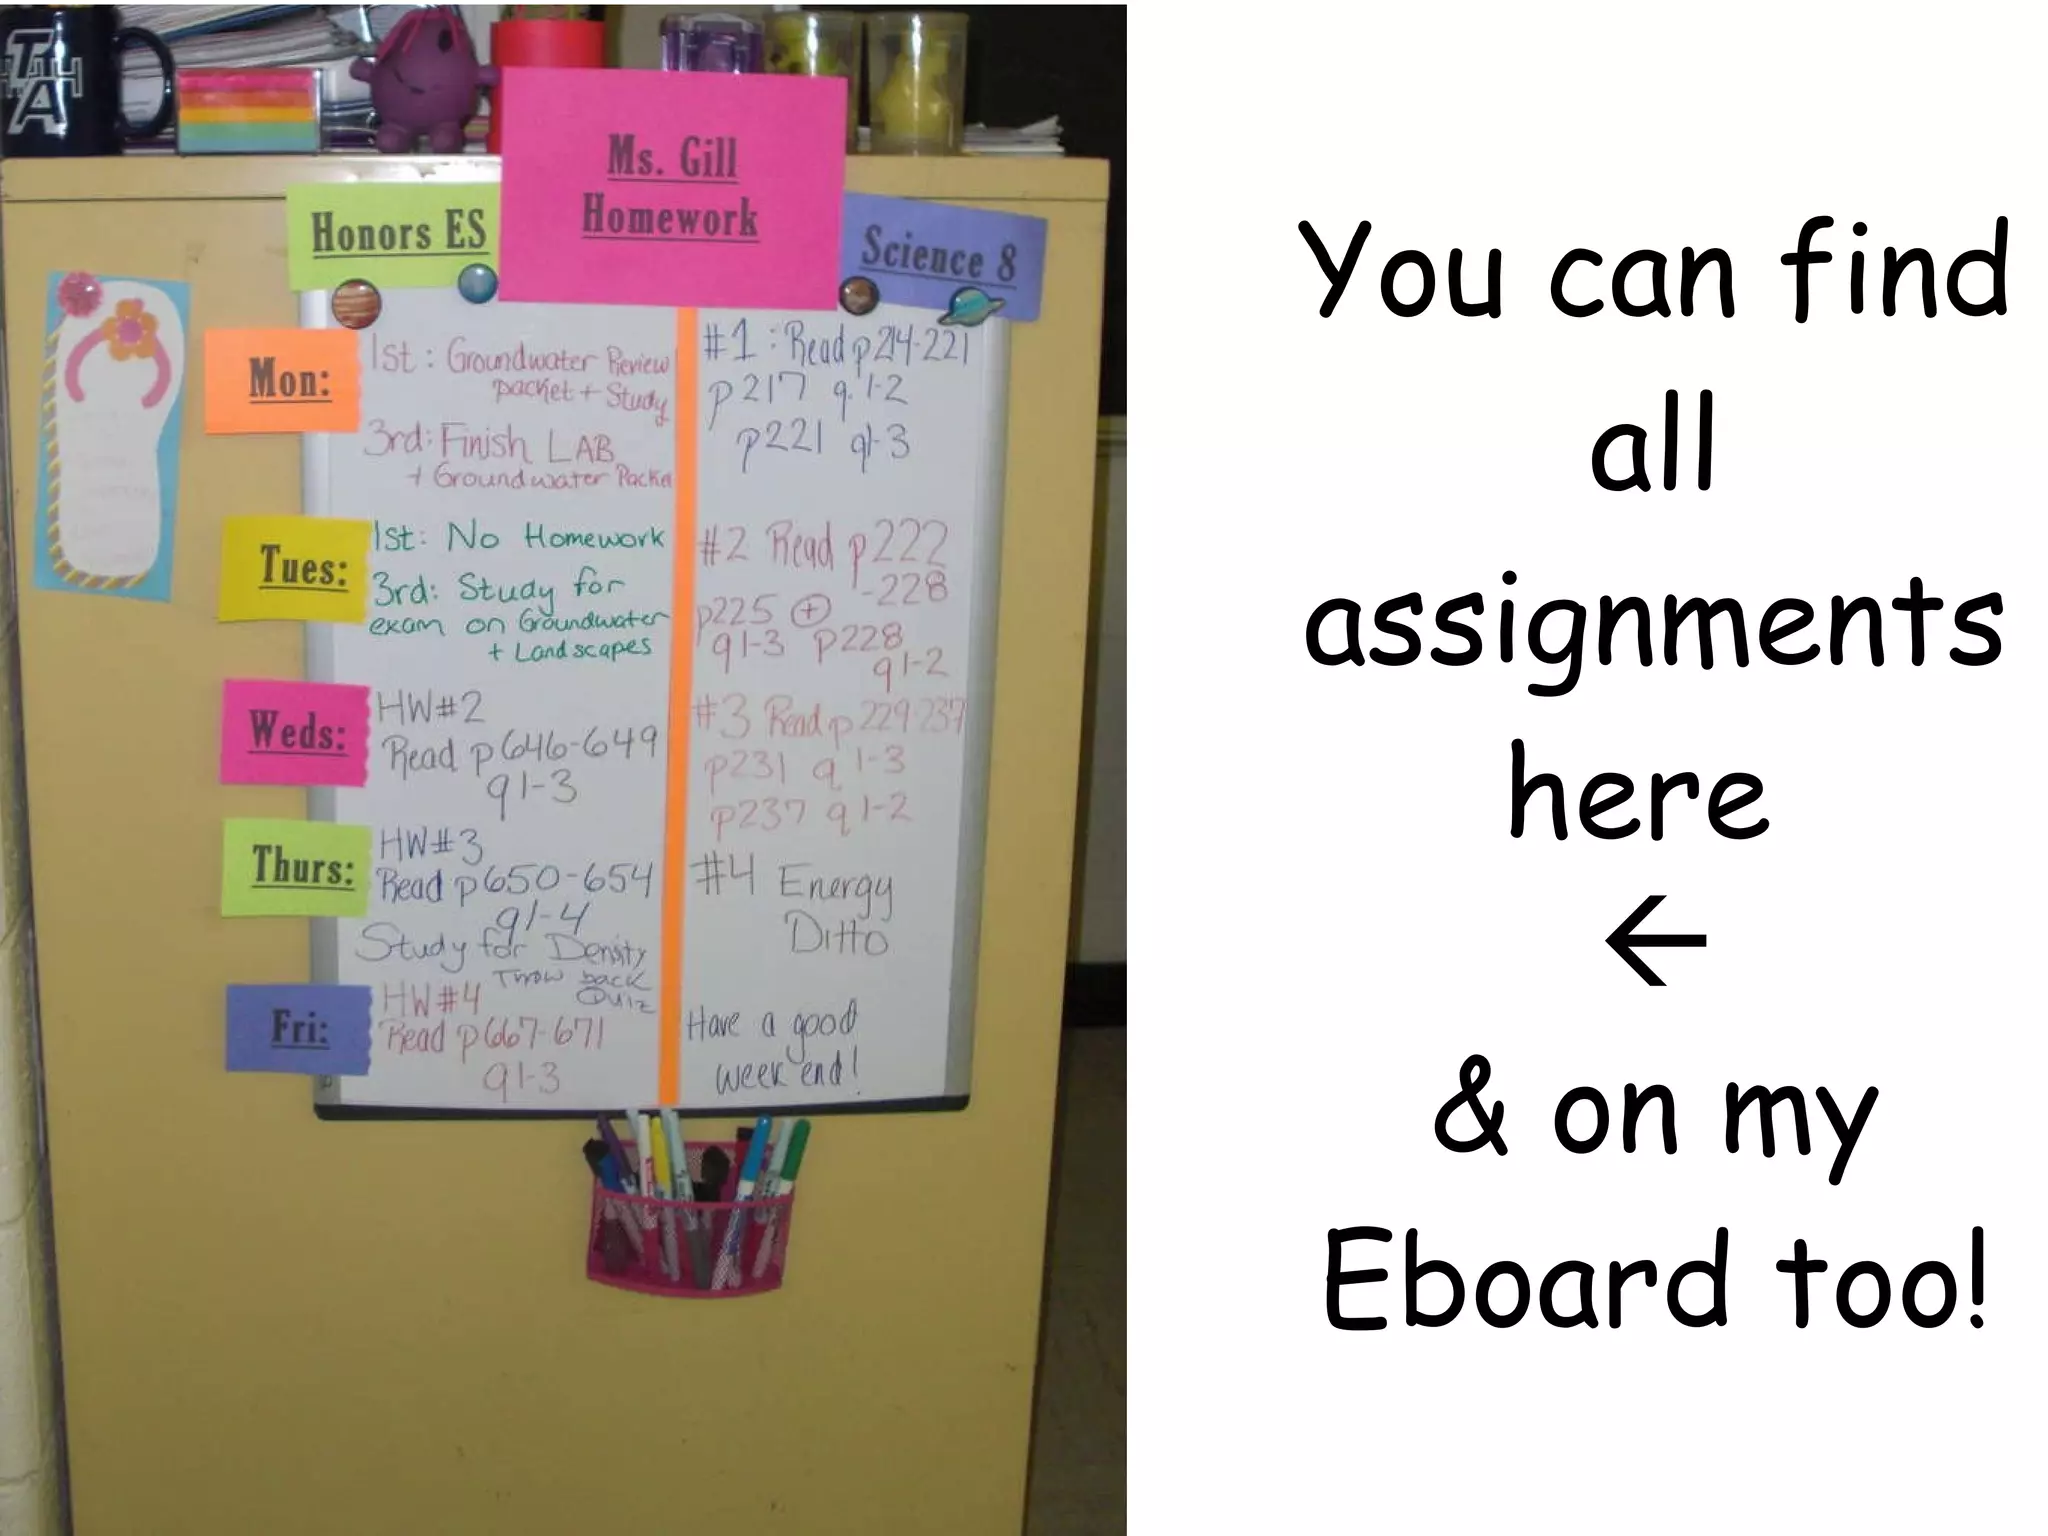 Ms. Gill
Homework
Honors ES
Science 8
Mon:
1st: Groundwater Review
packet + Study
3rd: Finish LAB
+ Groundwater Packet
#1: Read p214-221
p217 q 1-2
p221 q1-3
Tues:
1st: No Homework
3rd: Study for
exam on Groundwater
+ Landscapes
#2 Read p222
-228
p225 +
q1-3 p228
q1-2
Weds:
HW#2
Read p646-649
q1-3
#3 Read p229-237
p231 q 1-3
p237 q1-2
Thurs:
HW#3
Read p650-654
q1-4
Study for Density
Throw back
Quiz
#4 Energy
Ditto
Fri:
HW#4
Read p667-671
q1-3
Have a good
week end!
You can find
all
assignments
here
←
& on my
Eboard too!